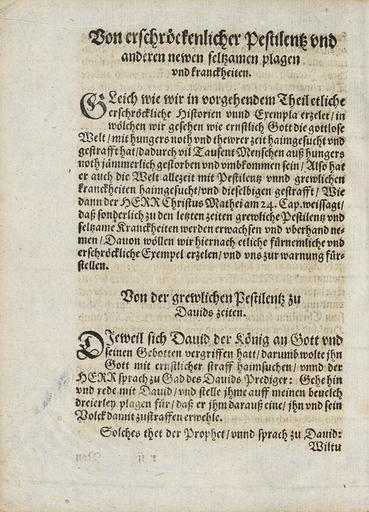 Von erschröckenlicher Pestilentz vnd
anderen newen seltzamen plagen
vnd kranckheiten.
GLeich wie wir in vorgehendem Theil etliche
erschröckliche Historien vnnd Exempla erzelet / in
wölchen wir gesehen wie ernstlich Gott die gottlose
Welt / mit hungers noth vnd thewrer zeit haimgesucht vnd
gestrafft hat / dadurch vil Tausend Menschen auß hungers
noth jämmerlich gestorben vnd vmbkommen sein / Also hat
er auch die Welt allezeit mit Pestilentz vnnd grewlichen
kranckheiten haimgesucht / vnd dieselbigen gestrafft / Wie
dann der HERR Christus Mathei am 24. Cap. weissagt /
daß sonderlich zu den letzten zeiten grewliche Pestilentz vnd
seltzame Kranckheiten werden erwachsen vnd vberhand ne-
men / Dauon wöllen wir hiernach etliche fürnemliche vnd
erschröckliche Exempel erzelen / vnd vns zur warnung für-
stellen.
Von der grewlichen Pestilentz zu
Dauids zeiten.
DJeweil sich Dauid der König an Gott vnd
seinen Gebotten vergriffen hatt / darumb wolte jhn
Gott mit ernstlicher straff haimsuchen / vnnd der
HERR sprach zu Gad des Dauids Prediger: Gehe hin
vnd rede mit Dauid / vnd stelle jhme auff meinen beuelch
dreyerley plagen für / daß er jhm darauß eine / jhn vnd sein
Volck damit zustraffen erwehle.
Solches thet der Prophet / vnnd sprach zu Dauid:
Wiltu